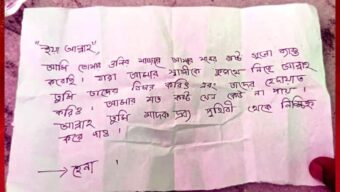 "ইয়া আল্লাহ,
আমি তোমার এনিব আমার আমার মনের কষ্ট গুলো ব্যক্ত
করেছি। যারা আমার স্বামীকে কুপথে নিছে আল্লাহ
তুমি তাদের বিচার করিও এবং তাদের হেদায়াত
করিও। আমার মত কষ্ট যেন কেউ না পায়।
আল্লাহ তুমি মাদক দ্রব্য পৃথিবী থেকে নিশ্চিহ্ন
করে দাও।
→ হেনা।